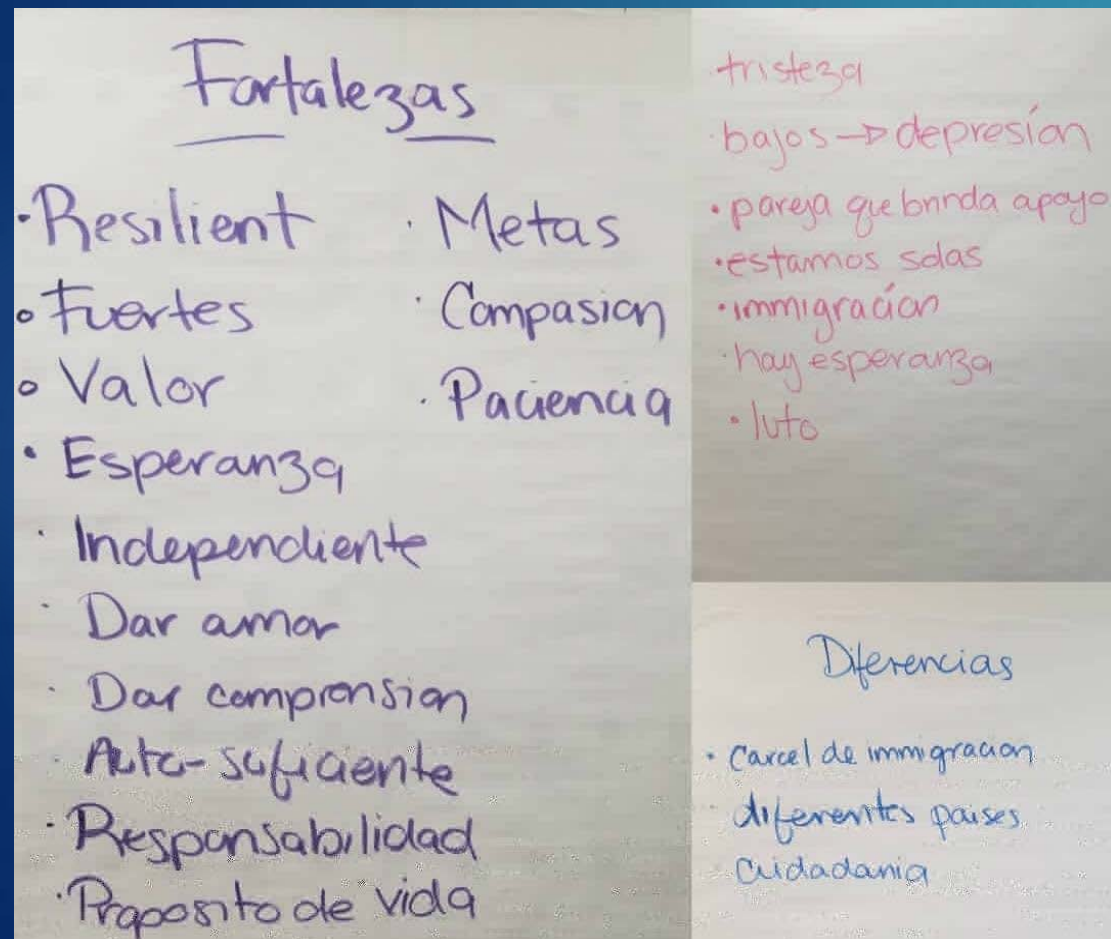 Fortalezas
·Resilient
·Fuertes
·Valor
·Esperanza
·Independiente
·Dar amor
·Dar comprension
·Auto-suficiente
·Responsabilidad
·Proposito de vida
·Metas
·Compasion
·Paciencia
tristeza
·bajos → depresión
·pareja que brinda apoyo
·estamos solas
·immigración
·hay esperanza
·luto
Diferencias
·Carcel de immigracion
·diferentes paises
·Cuidadania